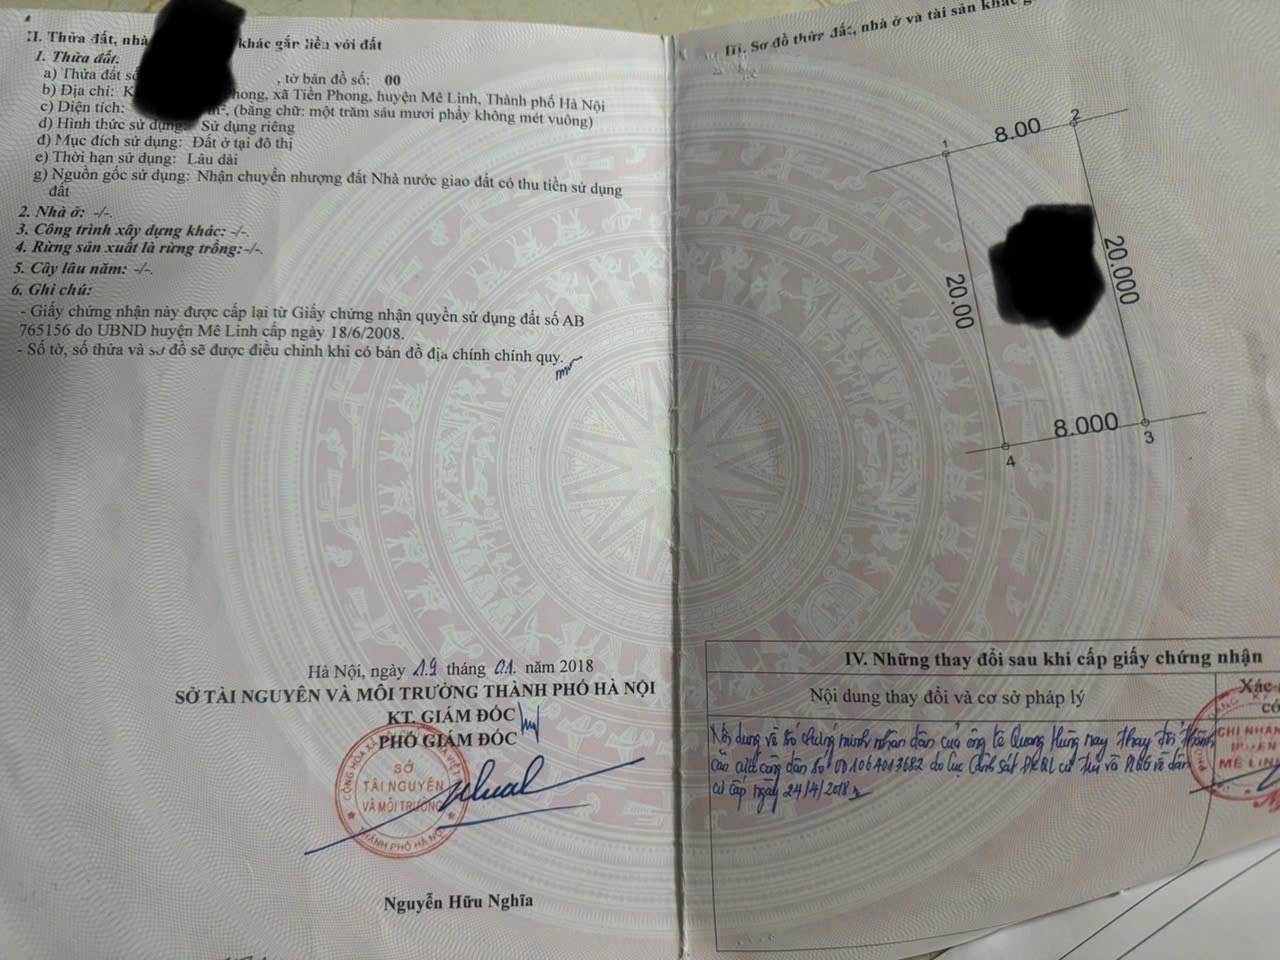 II. Thửa đất, nhà khác gắn liền với đất
1. Thửa đất:
a) Thửa đất số , tờ bản đồ số: 00
b) Địa chỉ: K Phong, xã Tiền Phong, huyện Mê Linh, Thành phố Hà Nội
c) Diện tích: m², (bằng chữ: một trăm sáu mươi phẩy không mét vuông)
d) Hình thức sử dụng: Sử dụng riêng
đ) Mục đích sử dụng: Đất ở tại đô thị
e) Thời hạn sử dụng: Lâu dài
g) Nguồn gốc sử dụng: Nhận chuyển nhượng đất Nhà nước giao đất có thu tiền sử dụng
đất
2. Nhà ở: -/-.
3. Công trình xây dựng khác: -/-.
4. Rừng sản xuất là rừng trồng: -/-.
5. Cây lâu năm: -/-.
6. Ghi chú:
- Giấy chứng nhận này được cấp lại từ Giấy chứng nhận quyền sử dụng đất số AB
765156 do UBND huyện Mê Linh cấp ngày 18/6/2008.
- Số tờ, số thửa và sơ đồ sẽ được điều chỉnh khi có bản đồ địa chính chính quy.
Hà Nội, ngày 19 tháng 01. năm 2018
SỞ TÀI NGUYÊN VÀ MÔI TRƯỜNG THÀNH PHỐ HÀ NỘI
KT. GIÁM ĐỐC
PHÓ GIÁM ĐỐC
SỞ
TÀI NGUYÊN
VÀ MÔI TRƯỜNG
THÀNH PHỐ HÀ NỘI
Nguyễn Hữu Nghĩa
III. Sơ đồ thửa đất, nhà ở và tài sản khác
1
8.00
2
20.00
20.000
8.000
3
4
IV. Những thay đổi sau khi cấp giấy chứng nhận
Nội dung thay đổi và cơ sở pháp lý
Xác
Nội dung về số chứng minh nhân dân của ông Lê Quang Hùng nay thay đổi thành
căn cước công dân số 001064013682 do Cục Cảnh sát ĐKQL cư trú và DLQG về dân
cư cấp ngày 24/4/2018
CHI NHÁNH
HUYỆN
MÊ LINH